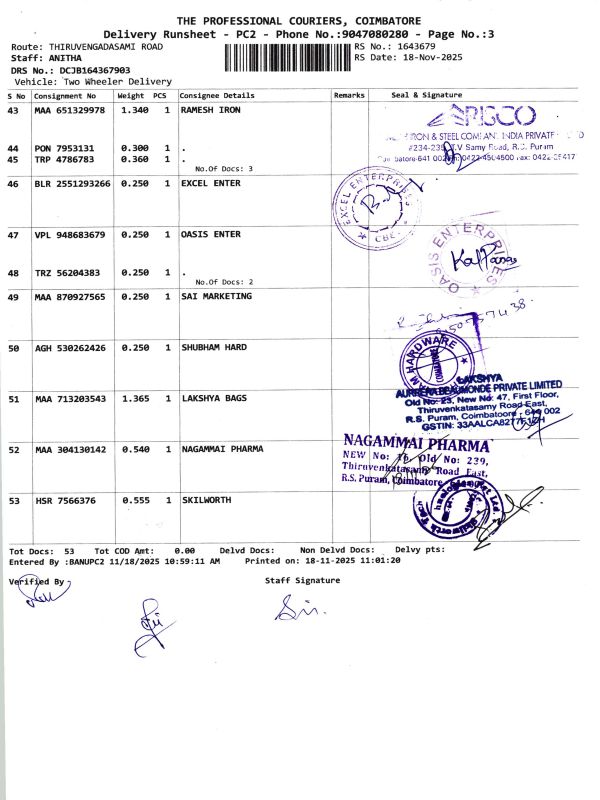 THE PROFESSIONAL COURIERS, COIMBATORE
Delivery Runsheet - PC2 - Phone No.:9047080280 - Page No.:3
Route: THIRUVENGADASAMI ROAD
RS No.: 1643679
Staff: ANITHA
RS Date: 18-Nov-2025
DRS No.: DCJB164367903
Vehicle: Two Wheeler Delivery
S No Consignment No Weight PCS Consignee Details Remarks Seal & Signature
43 MAA 651329978 1.340 1 RAMESH IRON
IRON & STEEL COMPANY INDIA PRIVATE
#234-235, T.V Samy Road, R.S. Puram
44 PON 7953131 0.300 1 .
45 TRP 4786783 0.360 1 .
No.Of Docs: 3
46 BLR 2551293266 0.250 1 EXCEL ENTER
EXCEL ENTERPRISES
CBE
47 VPL 948683679 0.250 1 OASIS ENTER
OASIS ENTERPRISES
Kalpana
48 TRZ 56204383 0.250 1 .
No.Of Docs: 2
49 MAA 870927565 0.250 1 SAI MARKETING
50 AGH 530262426 0.250 1 SHUBHAM HARD
HARDWARE
51 MAA 713203543 1.365 1 LAKSHYA BAGS
LAKSHYA
AURRERA BEAUMONDE PRIVATE LIMITED
Old No: 23, New No: 47, First Floor,
Thiruvenkatasamy Road East,
R.S. Puram, Coimbatoore - 641 002
GSTIN: 33AALCA8277F1ZH
52 MAA 304130142 0.540 1 NAGAMMAI PHARMA
NAGAMMAI PHARMA
NEW No: 16, Old No: 239,
Thiruvenkatasamy Road East,
R.S. Puram, Coimbatore
53 HSR 7566376 0.555 1 SKILWORTH
Skilworth Technologies Pvt Ltd.
Tot Docs: 53 Tot COD Amt: 0.00 Delvd Docs: Non Delvd Docs: Delvy pts:
Entered By :BANUPC2 11/18/2025 10:59:11 AM Printed on: 18-11-2025 11:01:20
Verified By
Staff Signature